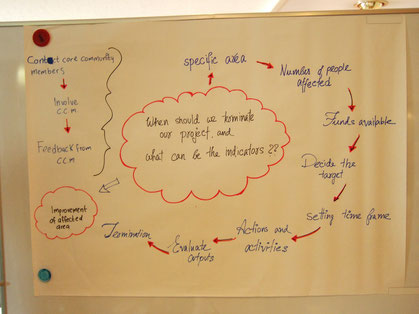 Contact core community
members
Involve
CCM
Feedback from
CCM
Improvement
of affected
area
When should we terminate
our project, and
what can be the indicators ??
specific area
Number of people
affected
Funds available
Decide the
target
Setting time frame
Actions and
activities
Evaluate
outputs
Termination